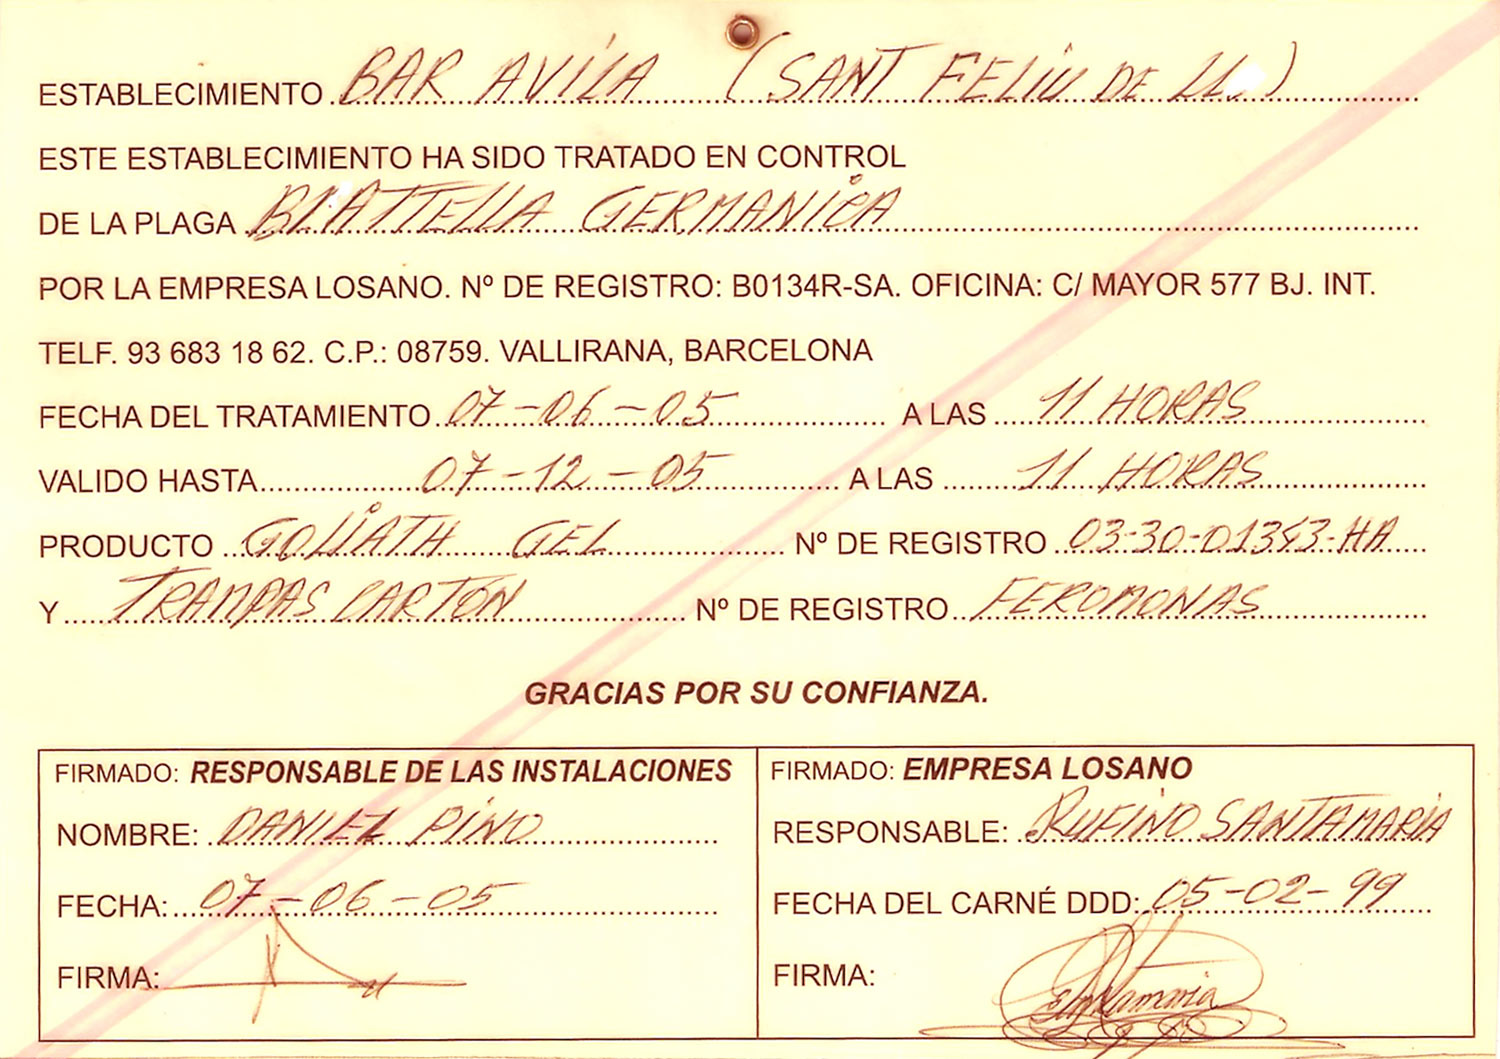 ESTABLECIMIENTO BAR AVILA (SANT FELIU DE LL.)
ESTE ESTABLECIMIENTO HA SIDO TRATADO EN CONTROL
DE LA PLAGA BLATTELLA GERMANICA
POR LA EMPRESA LOSANO. Nº DE REGISTRO: B0134R-SA. OFICINA: C/ MAYOR 577 BJ. INT.
TELF. 93 683 18 62. C.P.: 08759. VALLIRANA, BARCELONA
FECHA DEL TRATAMIENTO 07-06-05 A LAS 11 HORAS
VALIDO HASTA 07-12-05 A LAS 11 HORAS
PRODUCTO GOLIATH GEL Nº DE REGISTRO 03-30-01343-HA
Y TRAMPAS CARTÓN Nº DE REGISTRO FEROMONAS
GRACIAS POR SU CONFIANZA.
FIRMADO: RESPONSABLE DE LAS INSTALACIONES
NOMBRE: DANIEL PINO
FECHA: 07-06-05
FIRMA:
FIRMADO: EMPRESA LOSANO
RESPONSABLE: RUFINO SANTAMARIA
FECHA DEL CARNÉ DDD: 05-02-99
FIRMA: